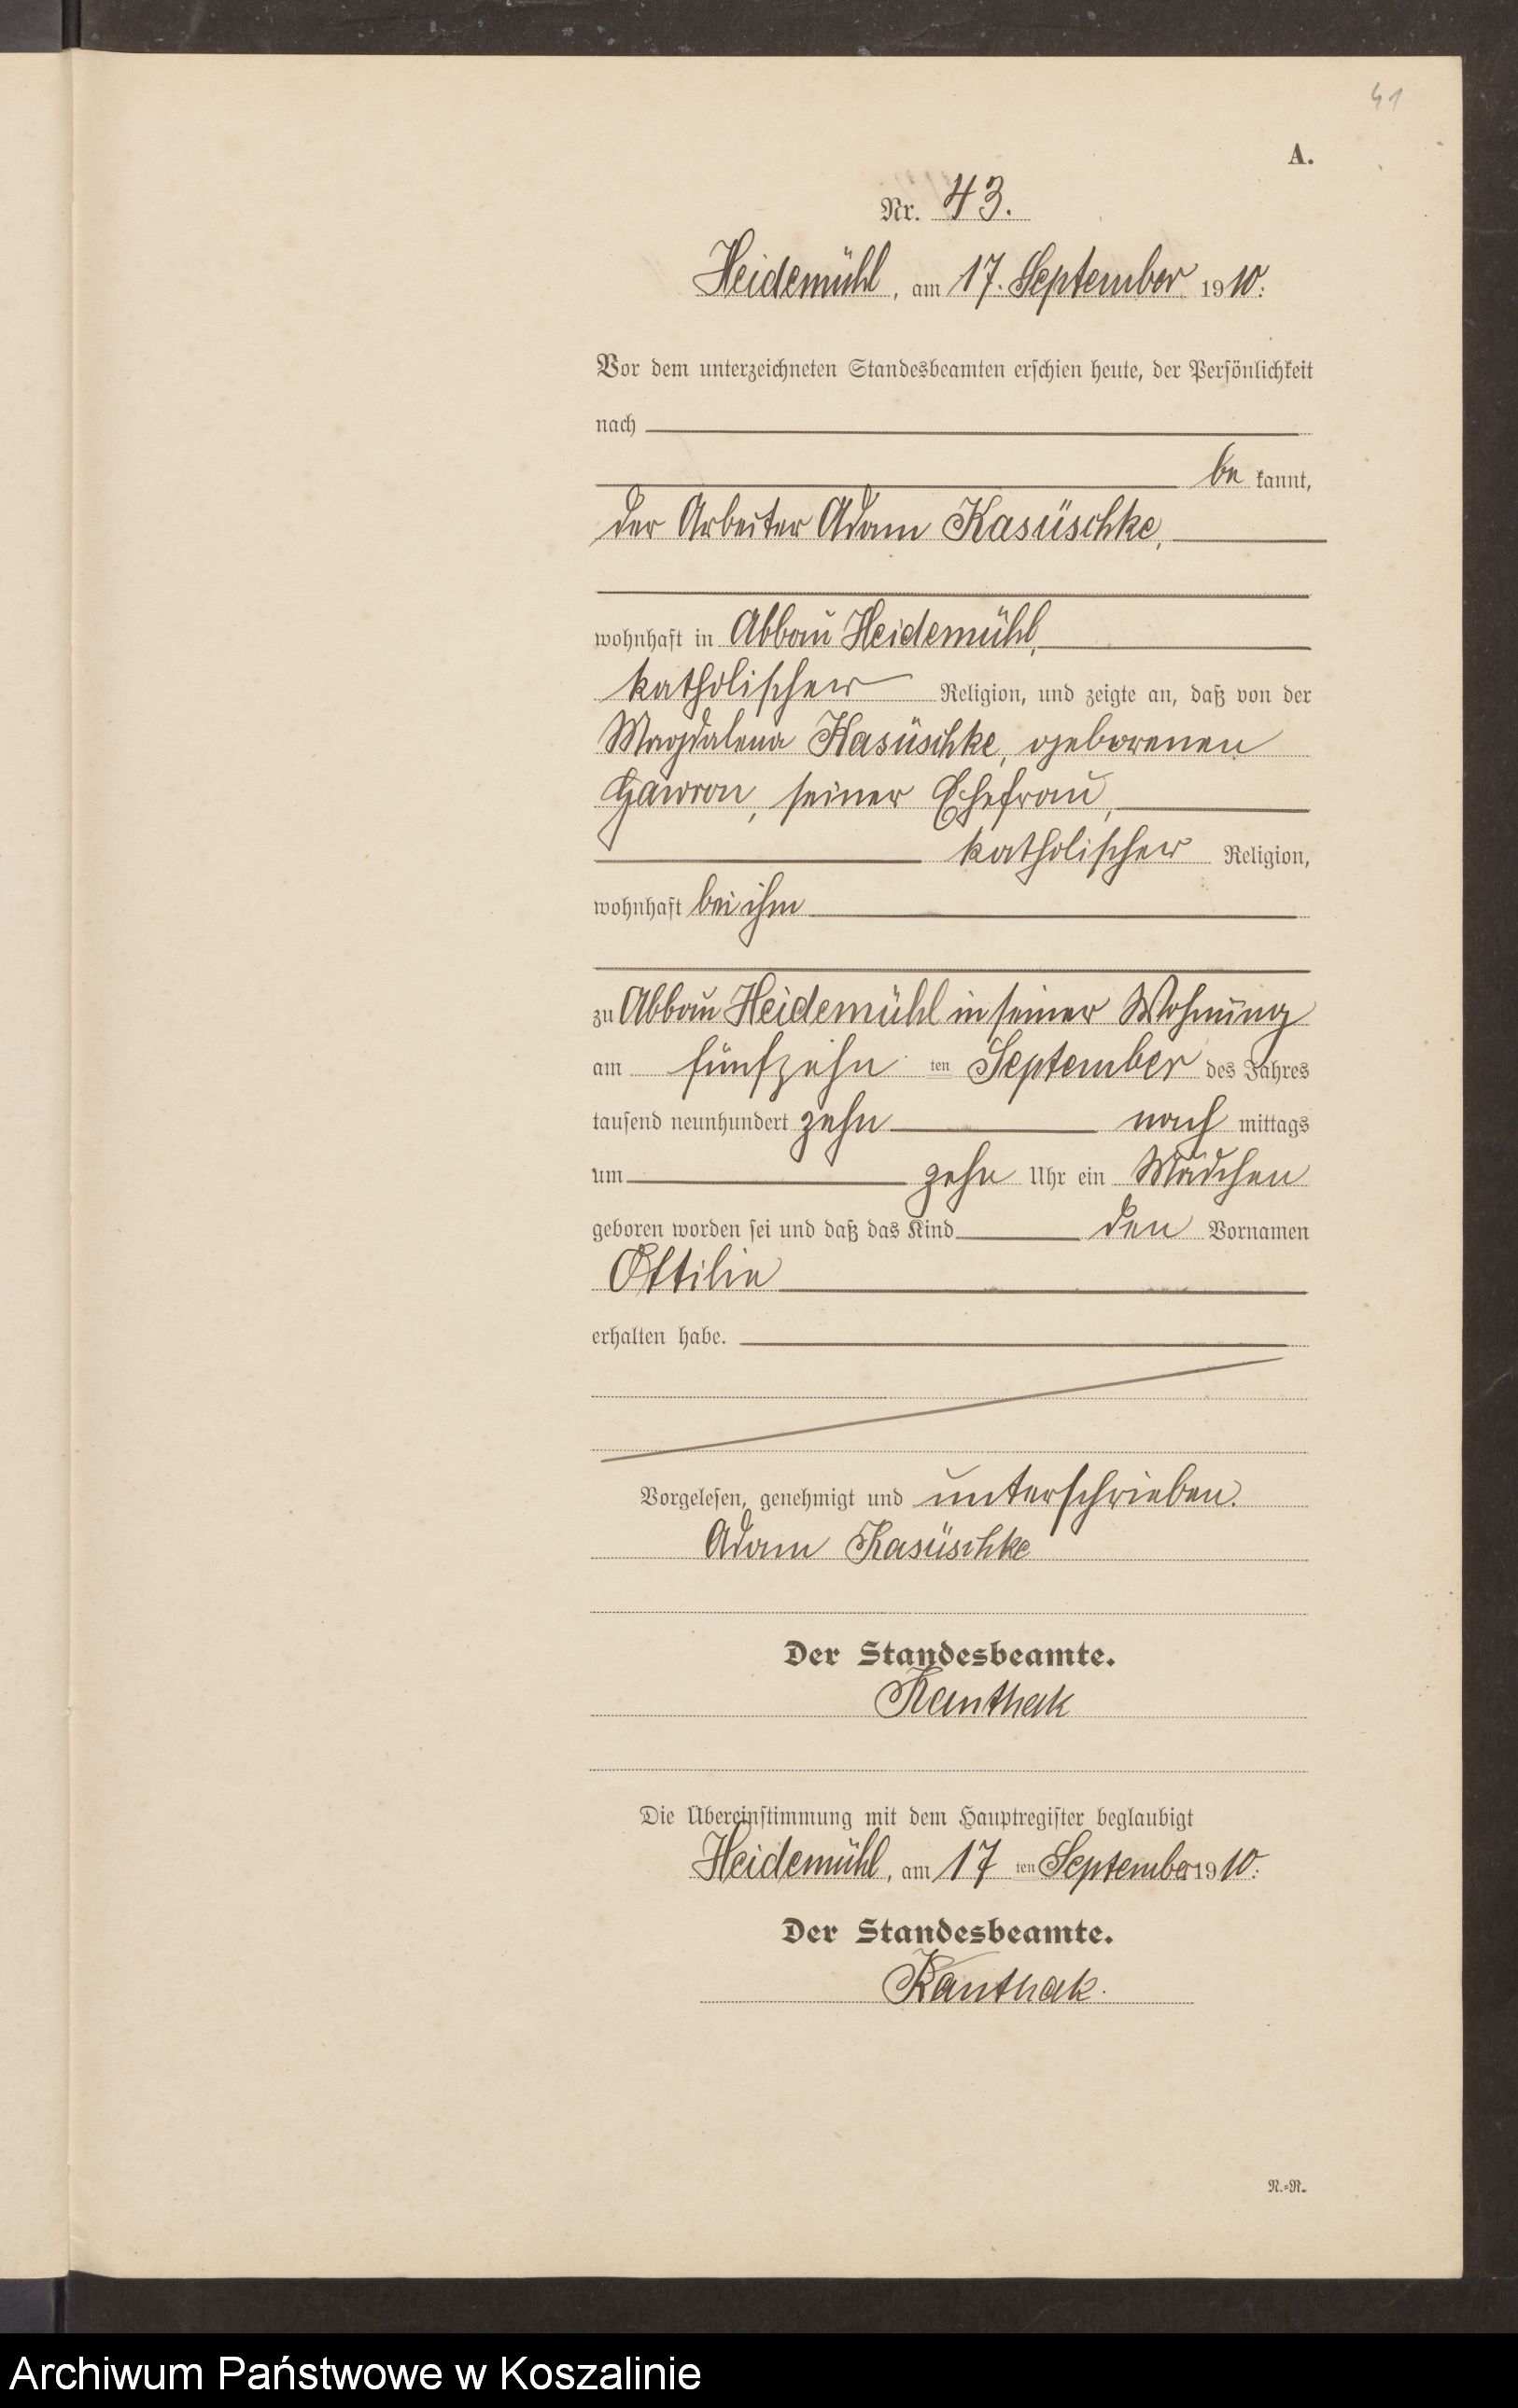 41
A.
Nr. 43.
Heidemühl, am 17. September 1910.
Vor dem unterzeichneten Standesbeamten erschien heute, der Persönlichkeit
nach
be kannt,
der Arbeiter Adam Kasüschke,
wohnhaft in Abbau Heidemühl,
katholischer Religion, und zeigte an, daß von der
Magdalena Kasüschke, geborenen
Gawron, seiner Ehefrau,
katholischer Religion,
wohnhaft bei ihm
zu Abbau Heidemühl in seiner Wohnung
am fünfzehn ten September des Jahres
tausend neunhundert zehn nach mittags
um zehn Uhr ein Mädchen
geboren worden sei und daß das Kind den Vornamen
Ottilie
erhalten habe.
Vorgelesen, genehmigt und unterschrieben.
Adam Kasüschke
Der Standesbeamte.
Kanthak
Die Übereinstimmung mit dem Hauptregister beglaubigt
Heidemühl, am 17 ten September 1910.
Der Standesbeamte.
Kanthak.
N.=R.
Archiwum Państwowe w Koszalinie